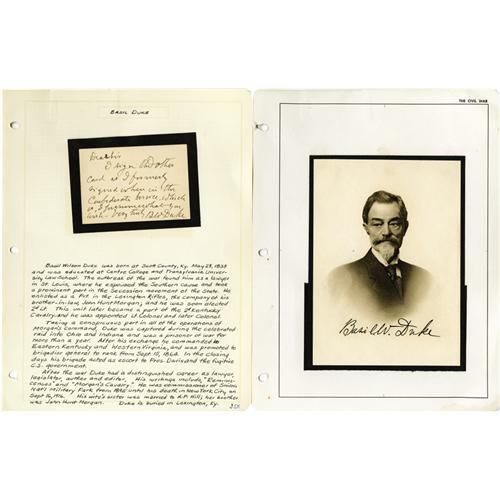 BASIL DUKE
Dear Sir
I sign the other
Card as I formerly
signed when in the
Confederate Service, which
is, I presume what you
wish - Very truly B.W. Duke
Basil Wilson Duke was born at Scott County, Ky. May 28, 1838
and was educated at Centre College and Transylvania Univer-
sity Law School. The outbreak of the war found him as a lawyer
in St. Louis, where he espoused the Southern cause and took
a prominent part in the Secession movement of the State. He
enlisted as a Pvt in the Lexington Rifles, the company of his
brother-in-law, John Hunt Morgan; and he was soon elected
2d Lt. This unit later became a part of the 2d Kentucky
Cavalry and he was appointed Lt. Colonel and later Colonel.
Taking a conspicuous part in all of the operations of
Morgan's command, Duke was captured during the celebrated
raid into Ohio and Indiana and was a prisoner of war for
more than a year. After his exchange he commanded to
Eastern Kentucky and Western Virginia, and was promoted to
brigadier general to rank from Sept. 15, 1864. In the closing
days his brigade acted as escort to Pres. Davis and the fugitive
C.S. government.
After the war Duke had a distinguished career as lawyer,
legislator, author and editor. His writings include, "Reminis-
cences" and "Morgan's Cavalry." He was commissioner of Shiloh
Nat'l Military Park from 1895 until his death in New York City on
Sept 16, 1916. His wife's sister was married to A.P. Hill; her brother
was John Hunt Morgan. Duke is buried in Lexington, Ky.
THE CIVIL WAR
Basil W. Duke